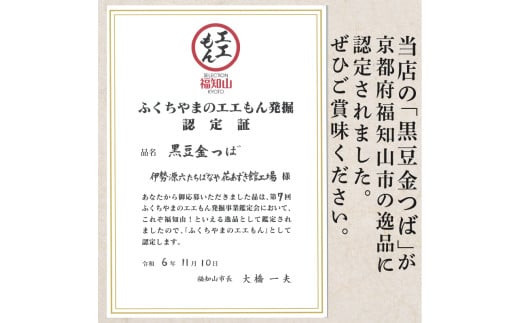 当店の「黒豆金つば」が
京都府福知山市の逸品に
認定されました。
ぜひご賞味ください。
エエ
もん
SELECTION
福知山
KYOTO
ふくちやまのエエもん発掘
認定証
品名 黒豆金つば
伊勢源六たちばなや 花あずき館工場 様
あなたから御応募いただきました品は、第7回
ふくちやまのエエもん発掘事業鑑定会において、
これぞ福知山！といえる逸品として鑑定され
ましたので、「ふくちやまのエエもん」として
認定します。
令和 6年 11月 10日
福知山市長 大橋 一夫